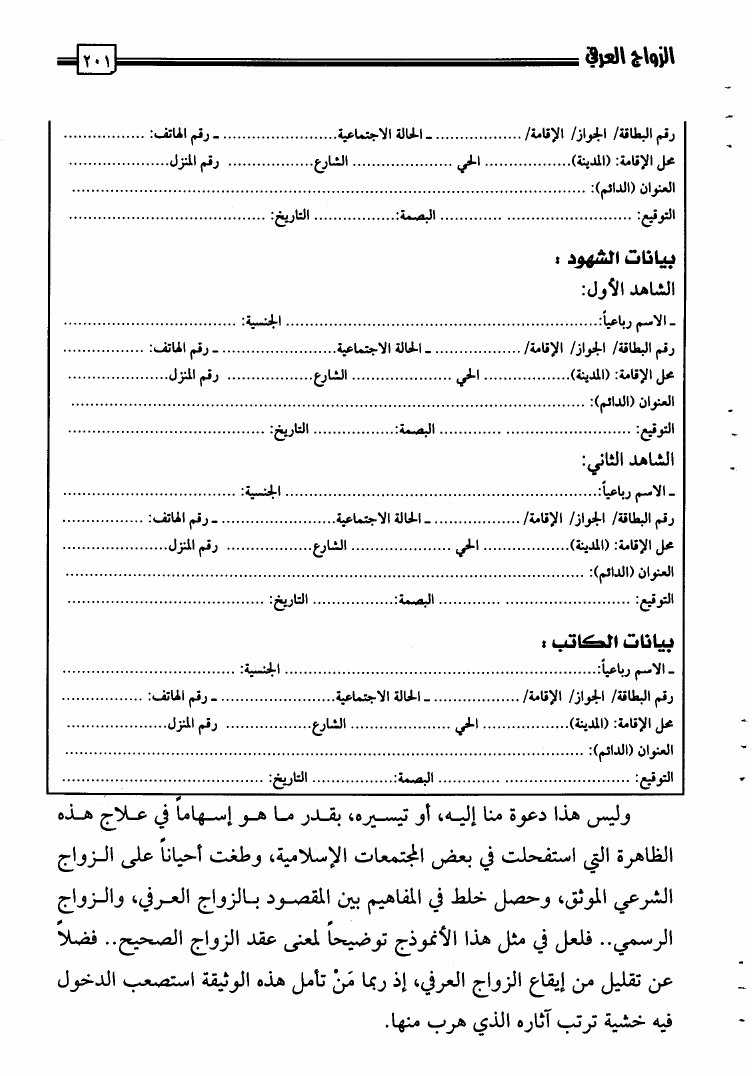 الزواج العرفي
٢٠١
رقم البطاقة/ الجواز/ الإقامة/ .................. ـ الحالة الاجتماعية........................ ـ رقم الهاتف: .................
محل الإقامة: (المدينة)................... الحي ..................... الشارع.................. رقم المنزل.....................
العنوان (الدائم): ...........................................................................................................
التوقيع: .......................... ............. البصمة:................. التاريخ: .........................................
بيانات الشهود :
الشاهد الأول:
ـ الاسم رباعياً:................................................................. الجنسية: ....................................
رقم البطاقة/ الجواز/ الإقامة/ .................. ـ الحالة الاجتماعية........................ ـ رقم الهاتف: .................
محل الإقامة: (المدينة)................... الحي ..................... الشارع.................. رقم المنزل.....................
العنوان (الدائم): ...........................................................................................................
التوقيع: .......................... ............. البصمة:................. التاريخ: .........................................
الشاهد الثاني:
ـ الاسم رباعياً:................................................................. الجنسية: ....................................
رقم البطاقة/ الجواز/ الإقامة/ .................. ـ الحالة الاجتماعية........................ ـ رقم الهاتف: .................
محل الإقامة: (المدينة)................... الحي ..................... الشارع.................. رقم المنزل.....................
العنوان (الدائم): ...........................................................................................................
التوقيع: .......................... ............. البصمة:................. التاريخ: .........................................
بيانات الكاتب :
ـ الاسم رباعياً:................................................................. الجنسية: ....................................
رقم البطاقة/ الجواز/ الإقامة/ .................. ـ الحالة الاجتماعية........................ ـ رقم الهاتف: .................
محل الإقامة: (المدينة)................... الحي ..................... الشارع.................. رقم المنزل.....................
العنوان (الدائم): ...........................................................................................................
التوقيع: .......................... ............. البصمة:................. التاريخ: .........................................
وليس هذا دعوة منا إليه، أو تيسيره، بقدر ما هو إسهاماً في علاج هذه
الظاهرة التي استفحلت في بعض المجتمعات الإسلامية، وطغت أحياناً على الزواج
الشرعي الموثق، وحصل خلط في المفاهيم بين المقصود بالزواج العرفي، والزواج
الرسمي.. فلعل في مثل هذا الأنموذج توضيحاً لمعنى عقد الزواج الصحيح.. فضلاً
عن تقليل من إيقاع الزواج العرفي، إذ ربما مَنْ تأمل هذه الوثيقة استصعب الدخول
فيه خشية ترتب آثاره الذي هرب منها.